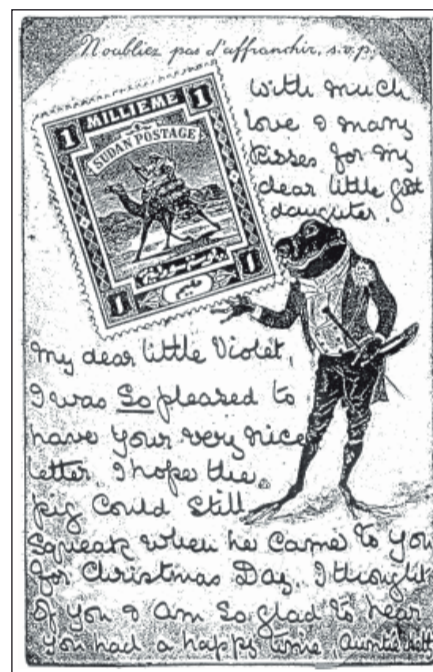 N'oubliez pas d'affranchir, s.v.p.
1 MILLIEME 1
SUDAN POSTAGE
1 1
With much
love & many
kisses for my
dear little god
daughter.
My dear little Violet,
I was So pleased to
have your very nice
letter. I hope the
pig could still
Squeak when he came to you
for Christmas Day. I thought
of you & am so glad to hear
you had a happy time. Auntie